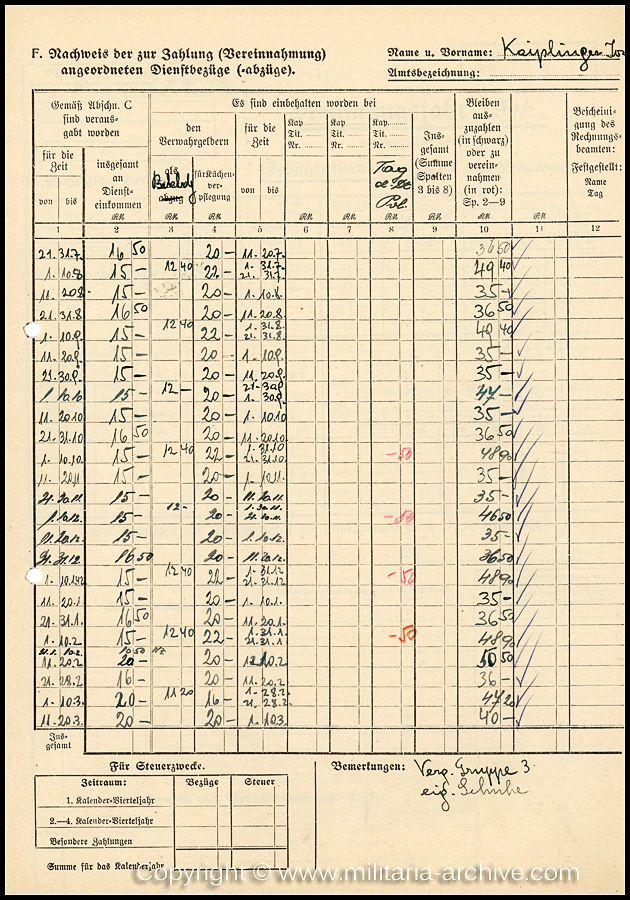 F. Nachweis der zur Zahlung (Vereinnahmung)
angeordneten Dienstbezüge (-abzüge).
Name u. Vorname: Kaiplinger
Amtsbezeichnung:
Gemäß Abschn. C sind verausgabt worden
Es sind einbehalten worden bei
Bleiben auszuzahlen (in schwarz) oder zu vereinnahmen (in rot): Sp. 2—9
Bescheinigung des Rechnungsbeamten: Festgestellt: Name Tag
für die Zeit
insgesamt an Diensteinkommen
den Verwahrgeldern
für die Zeit
Kap. Tit. Nr.
Kap. Tit. Nr.
Kap. Tit. Nr.
Insgesamt (Summe Spalten 3 bis 8)
von bis
als abzug
für Küchenverpflegung
von bis
Tag
RM RM RM RM RM RM RM RM RM
1 2 3 4 5 6 7 8 9 10 11 12
21. 31.7. 16 50 20 – 11. 20.7. 36 50
1. 10.8. 15 – 12 40 22 – 1. 31.7. 21. 31.7. 49 40
11. 20.8. 15 – 20 – 1. 10.8. 35 –
21. 31.8 16 50 20 – 11. 20.8 36 50
1. 10.9. 15 – 12 40 22 – 1. 31.8. 21. 31.8. 49 40
11. 20.9. 15 – 20 – 1. 10.9. 35 –
21. 30.9. 15 – 20 – 11. 20.9. 35 –
1. 10.10 15 – 12 – 20 – 21. 30.9. 1. 30.9. 47 –
11. 20.10 15 – 20 – 1. 10.10 35 –
21. 31.10 16 50 20 – 11. 20.10 36 50
1. 10.10. 15 – 12 40 22 – 1. 31.10 21. 31.10. – 50 48 90
11. 20.11 15 – 20 – 1. 10.11. 35 –
21. 30.11. 15 – 20 – 11. 20.11. 35 –
1. 10.12. 15 – 12 – 20 – 1. 30.11. 21. 30.11. – 50 46 50
11. 20.12. 15 – 20 – 1. 10.12. 35 –
21. 31.12. 16 50 20 – 11. 20.12. 36 50
1. 10.1.42 15 – 12 40 22 – 1. 31.12 21. 31.12 – 50 48 90
11. 20.1. 15 – 20 – 1. 10.1. 35 –
21. 31.1. 16 50 20 – 11. 20.1. 36 50
1. 10.2 15 – 12 40 22 – 1. 31.1. 21. 31.1. – 50 48 90
10 50
11. 20.2. 20 – 20 – 1. 10.2 50 50
21. 28.2 16 – 20 – 11. 20.2 36 –
1. 10.3. 20 – 11 20 16 – 1. 28.2. 21. 28.2. 47 20
11. 20.3. 20 – 20 – 1. 10.3. 40 –
Insgesamt
Für Steuerzwecke.
Bemerkungen: Verg. Gruppe 3.
eig.
Zeitraum: Bezüge Steuer
1. Kalender-Vierteljahr
2.—4. Kalender-Vierteljahr
Besondere Zahlungen
Summe für das Kalenderjahr
Copyright © www.militaria-archive.com